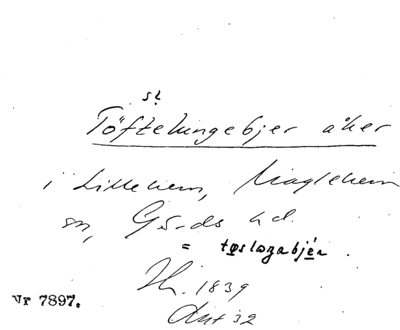 sl
Töftelungebjer åker
i Lillehem, Maglehem
sn, Gärds hd.
= tøslozabjér.
Th. 1839
Avt 32
Nr 7897.